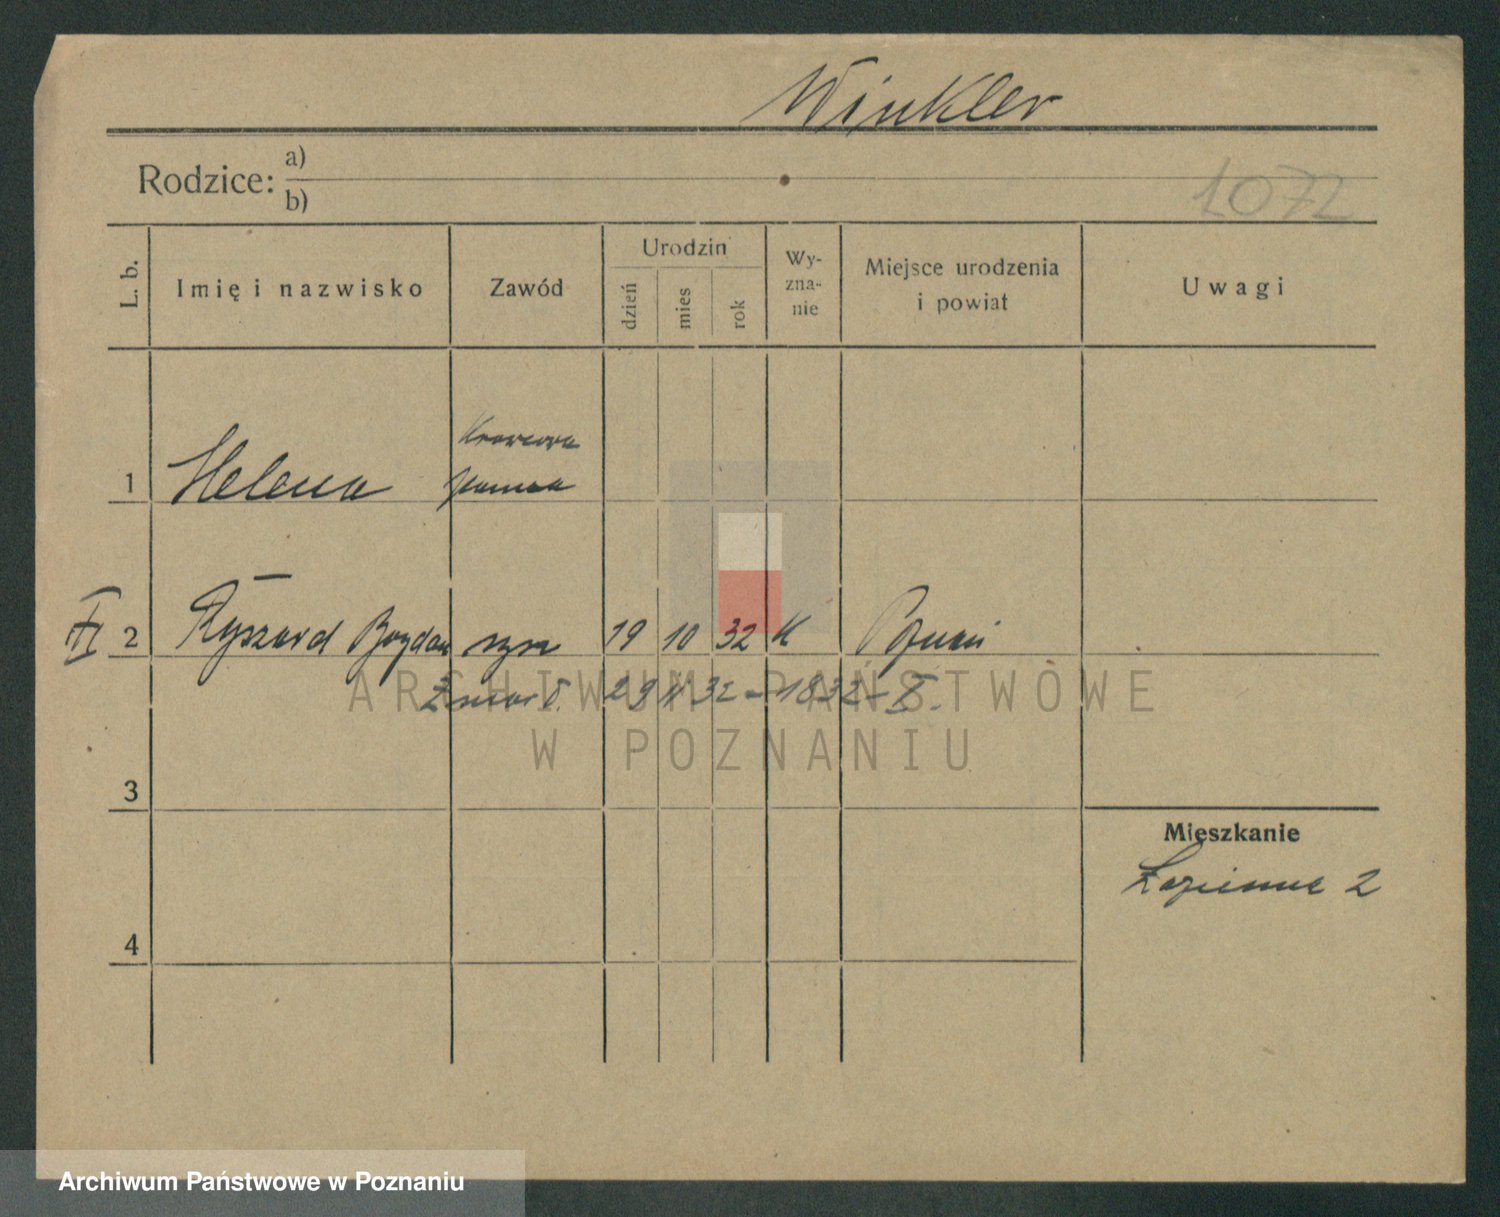 Winkler
Rodzice: a)
b)
1072
L. b.
Imię i nazwisko
Zawód
Urodzin
dzień
mies
rok
Wy-
zna-
nie
Miejsce urodzenia
i powiat
Uwagi
Krawcowa
1 Helena panna
III 2 Ryszard Bogdan syn 19 10 32 K Poznań
Zmarł. 29 11 32 - 1832 - II.
ARCHIWUM PAŃSTWOWE
W POZNANIU
3
Mieszkanie
Łazienna 2
4
Archiwum Państwowe w Poznaniu